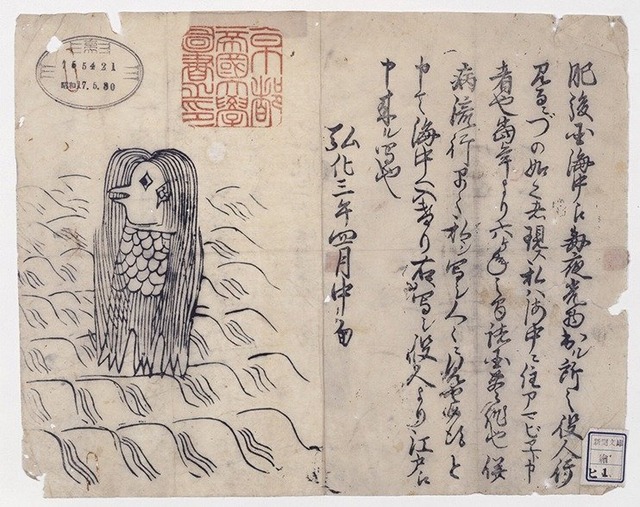 肥後国海中え毎夜光物出ル所之役人行
見るニづの如く者現ス私ハ海中ニ住アマビヱト申
者也当年より六ヶ年之間諸国豊作也併
病流行早々私ヲ写シ人々ニ見セ候得と
申て海中へ入けり右写シ役人より江戸え
申来ル写也
弘化三年四月中旬
京都
帝國大學
圖書之印
165421
昭和17.5.30
新聞文庫
ヒ 1